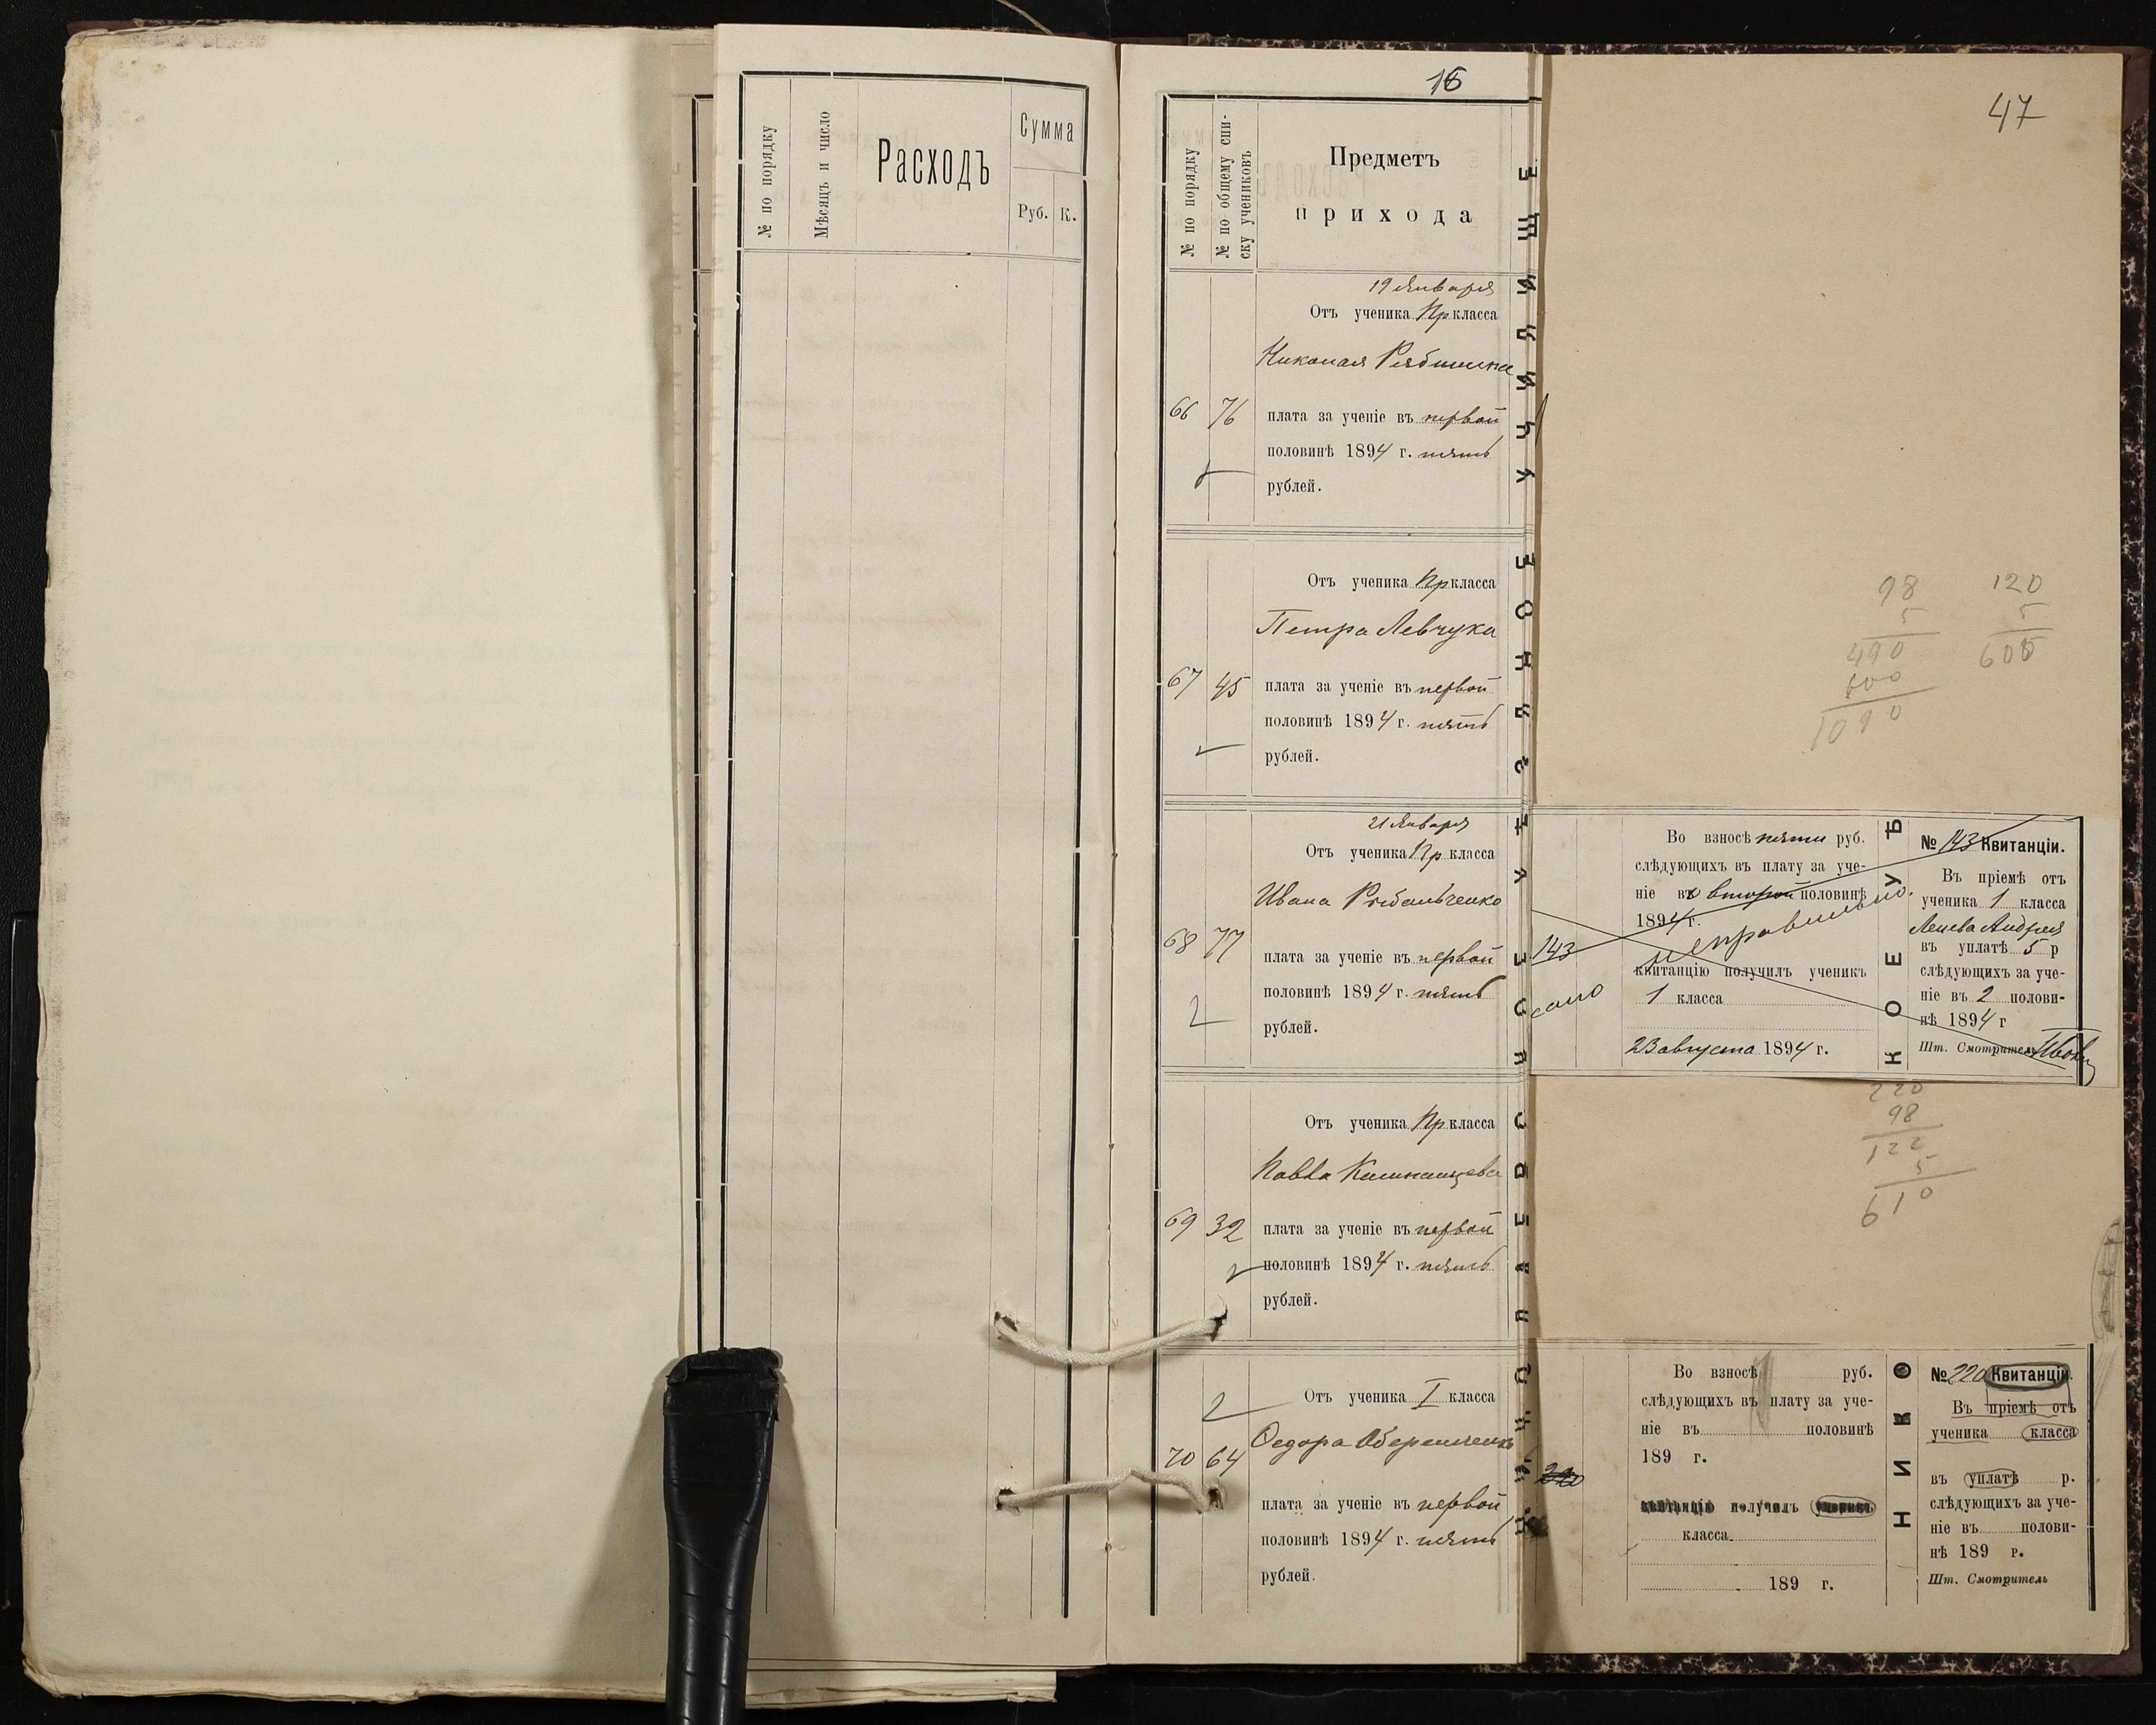 № по порядку
Мѣсяцъ и число
Расходъ
Сумма
Руб.
К.
16
№ по порядку
№ по общему спи-
ску учениковъ
Предметъ
прихода
19 Января
Отъ ученика Пр класса
Николая
66 76 плата за ученіе въ первой
половинѣ 1894 г. пять
рублей.
Отъ ученика Пр класса
Петра Левчука
67 45 плата за ученіе въ первой
половинѣ 1894 г. пять
рублей.
21 Января
Отъ ученика Пр класса
Ивана
68 77 плата за ученіе въ первой
половинѣ 1894 г. пять
рублей.
Отъ ученика Пр класса
Павла
69 32 плата за ученіе въ первой
половинѣ 1894 г. пять
рублей.
Отъ ученика I класса
Федора
70 64
плата за ученіе въ первой
половинѣ 1894 г. пять
рублей.
47
98
5
490
600
1090
120
5
600
143
Во взносѣ пяти руб.
слѣдующихъ въ плату за уче-
ніе во второй половинѣ
1894 г.
неправильно.
квитанцію получилъ ученикъ
1 класса
23 августа 1894 г.
КОЕ УѢ
№ 143 Квитанціи.
Въ пріемѣ отъ
ученика 1 класса
Андрея
въ уплатѣ 5 р
слѣдующихъ за уче-
ніе въ 2 полови-
нѣ 1894 г
Шт. Смотритель
220
98
122
5
610
220
Во взносѣ руб.
слѣдующихъ въ плату за уче-
ніе въ половинѣ
189 г.
квитанцію получилъ ученикъ
класса
189 г.
НИКО
№ 220 Квитанціи.
Въ пріемѣ отъ
ученика класса
въ уплатѣ р.
слѣдующихъ за уче-
ніе въ полови-
нѣ 189 г.
Шт. Смотритель